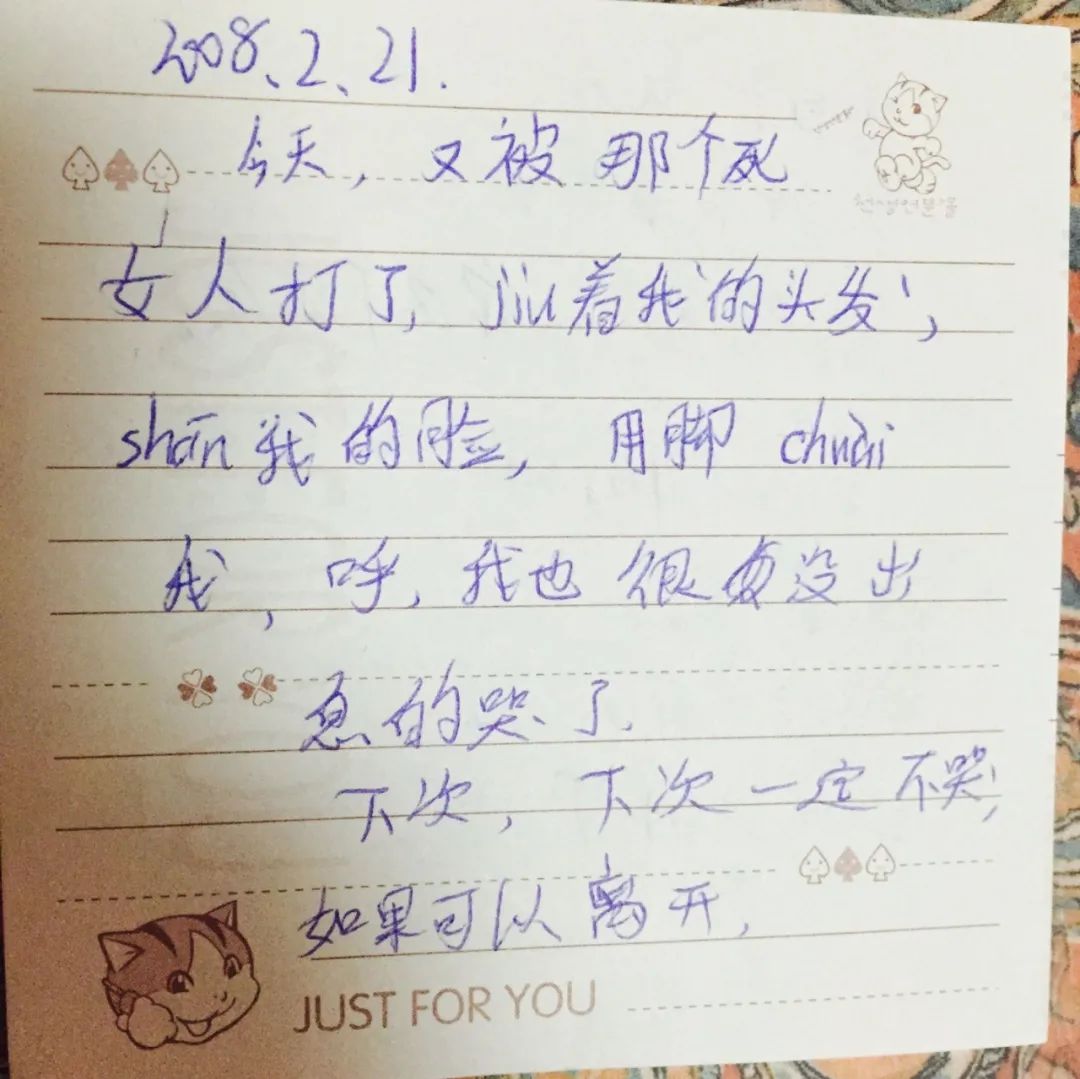 2008、2、21.
今天，又被那个死
女人打了，jiu着我的头发，
shān我的脸，用脚 chuài
我，呼，我也很没出
息的哭了.
下次，下次一定不哭，
如果可以离开，
JUST FOR YOU